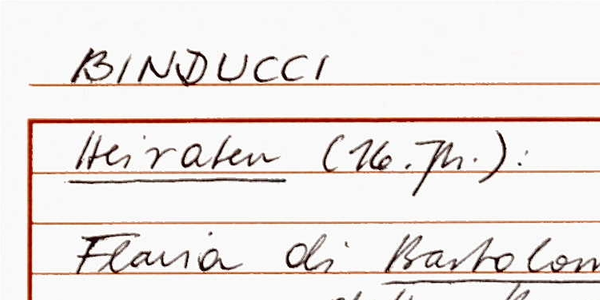 BINDUCCI
Heiraten (16. Jh.):
Flavia di Bartolom